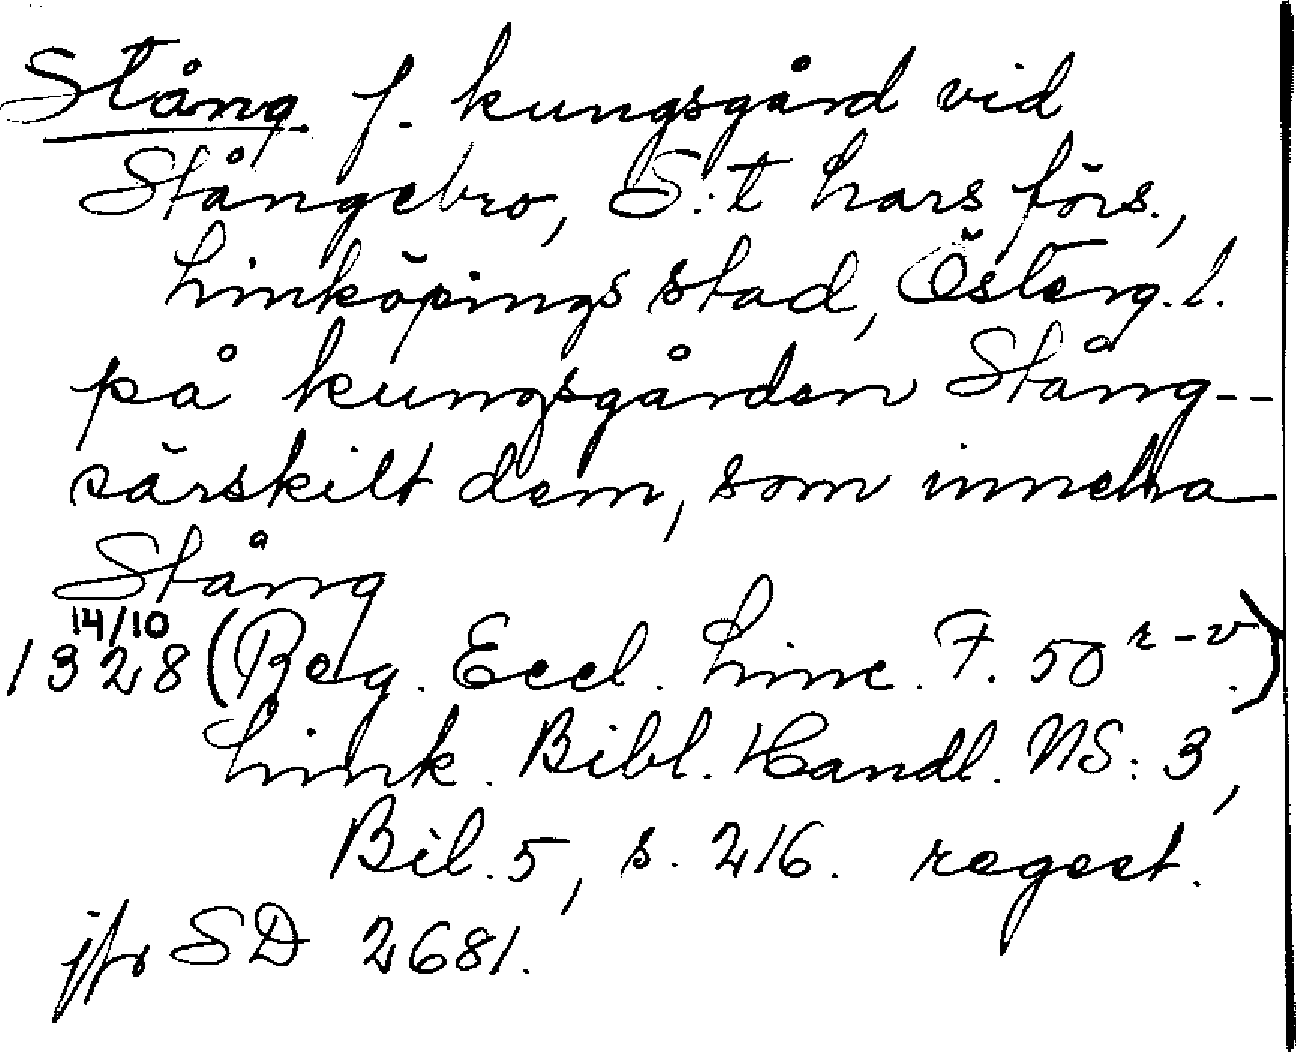 Stång f. kungsgård vid
Stångebro, S:t Lars förs.,
Linköpings stad, Österg.l.
på kungsgården Stång--
särskilt dem, som inneha
Stång
14/10
1328 (Reg. Eccl. Linc. F. 50 r-v.)
Link. Bibl. Handl. NS: 3,
Bil. 5, s. 216. regest.
jfr SD 2681.